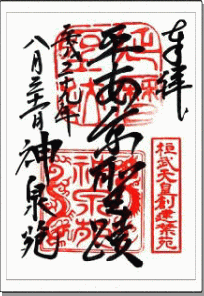 奉拝
桓武天皇創建禁苑
平安京聖蹟
神泉苑
平成二十九年
八月三十一日